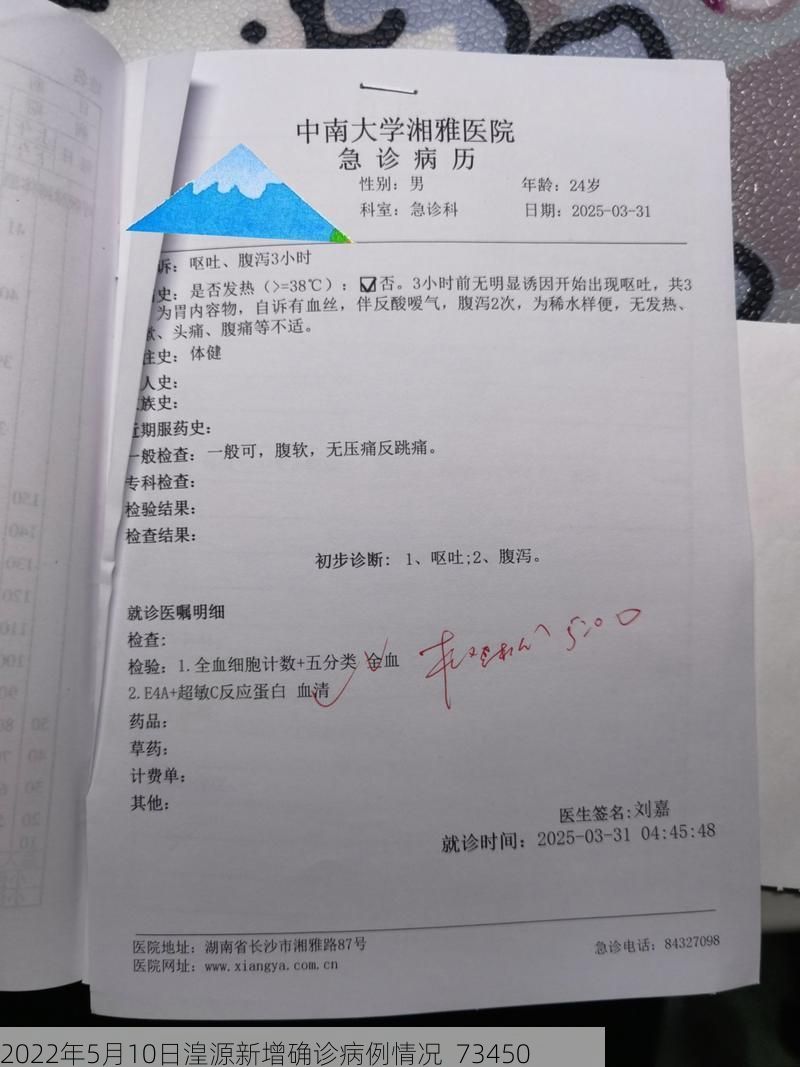 中南大学湘雅医院
急诊病历
性别：男 年龄：24岁
科室：急诊科 日期：2025-03-31
诉：呕吐、腹泻3小时
史：是否发热（>=38℃）：☑否。3小时前无明显诱因开始出现呕吐，共3
为胃内容物，自诉有血丝，伴反酸嗳气，腹泻2次，为稀水样便，无发热、
、头痛、腹痛等不适。
史：体健
人史：
族史：
近期服药史：
一般检查：一般可，腹软，无压痛反跳痛。
专科检查：
检验结果：
检查结果：
初步诊断: 1、呕吐;2、腹泻。
就诊医嘱明细
检查：
检验：1.全血细胞计数+五分类 全血
2.E4A+超敏C反应蛋白 血清
5:00
药品：
草药：
计费单：
其他：
医生签名:刘嘉
就诊时间：2025-03-31 04:45:48
医院地址：湖南省长沙市湘雅路87号 急诊电话：84327098
医院网址：www.xiangya.com.cn
2022年5月10日湟源新增确诊病例情况 73450